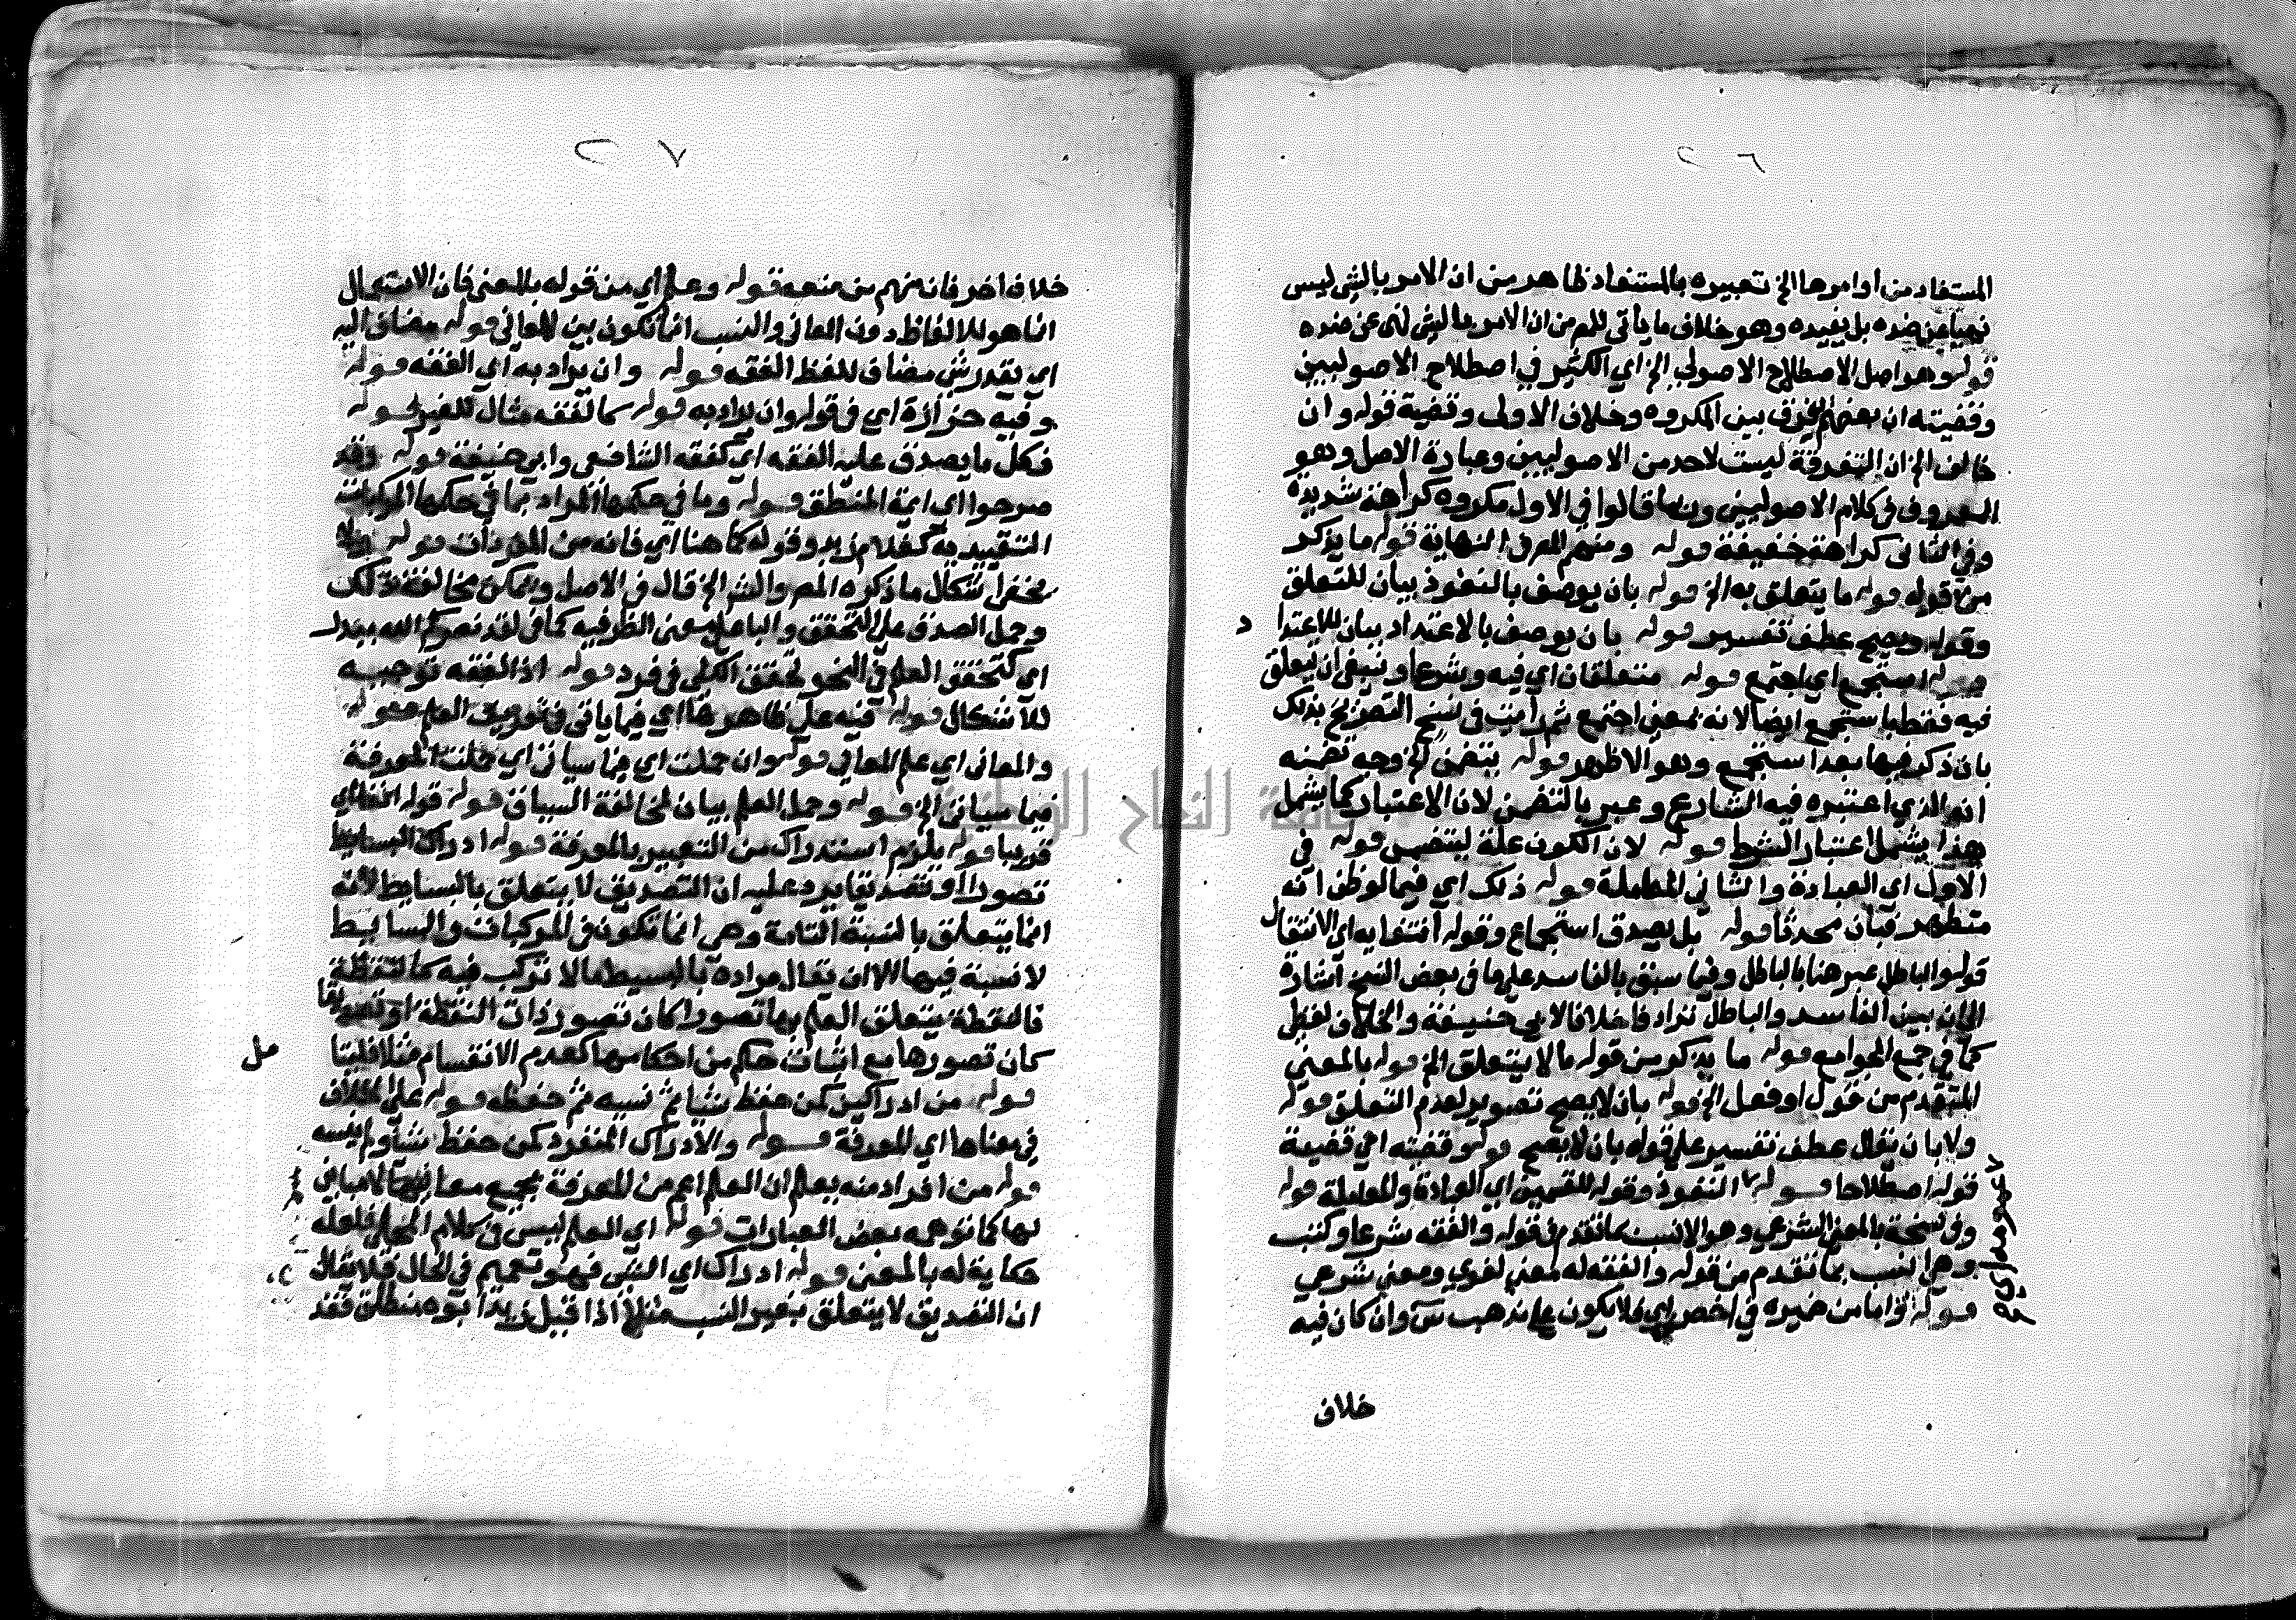 ٢٦
المستفاد من اوامرها الخ تعبيره بالمستفاد ظاهر من ان الامر بالشي ليس
نهيا عن ضده بل يفيده وهو خلاف ما ياتي للم من ان الامر بالشي نهي عن ضده
قوله وهو اصل الاصطلاح الاصولي الخ اي الكثير في اصطلاح الاصوليين
وقضيته ان بعضهم فرق بين المكروه وخلاف الاولى وقضية قوله وان
خالف الخ ان التفرقة ليست لاحد من الاصوليين وعبارة الاصل وهو
المعروف في كلام الاصوليين قالوا في الاول مكروه كراهة شديدة
وفي الثاني كراهة خفيفة قوله ومنهم المص في النهاية قوله ما يذكر
من قوله قوله ما يتعلق به الخ قوله بان يوصف بالنفوذ بيان للتعلق
وقوله ويصح عطف تفسير قوله بان يوصف بالاعتداد بيان للاعتدا
د
قوله استجمع اي اجتمع قوله متعلقان اي فيه وشرعا وينبغي ان يتعلق
فيه فقط باستجمع ايضا لانه بمعنى اجتمع ثم رايت في نسخ التصريح بذلك
بان ذكر فيها بعد استجمع وهو الاظهر قوله يتضمن الخ وجه تضمنه
انه الذي اعتبره فيه الشارع وعبر بالتضمن لان الاعتبار كما يشمل
هذا يشمل اعتبار الشرط قوله لان الكون علة ليتضمن قوله في
الاول اي العبادة والثاني المعاملة قوله ذلك اي فيما لو ظن انه
متطهر فبان محدثا قوله بل يصدق استجماع وقوله انتفايه اي الانتقال
قوله والباطل عبر هنا بالباطل وفيما سبق بالفاسد على ما في بعض النسخ اشارة
الى ان بين الفاسد والباطل ترادفا خلافا لابي حنيفة والخلاف لفظي
كما في جمع الجوامع قوله ما يذكر من قوله ما لا يتعلق الخ قوله بالمعنى
المتقدم من قول او فعل الخ قوله بان لا يصح تصوير لعدم التعلق قوله
ولا بان يقال عطف تفسير على قوله بان لا يصح قوله وقضيته اي قضية
قوله اصطلاحا قوله النفوذ وقوله للقسمين اي العبادة والمعاملة قوله
وفي نسخة بالمعنى الشرعي وهو الانسب بما تقدم في قوله والفقه شرعا وكتب
وهي انسب بما تقدم من قوله والفقه له معنى لغوي ومعنى شرعي
قوله من غيره في اخص اي فلا يكون على مذهب س وان كان فيه
خلاف
٢٧
خلاف اخر فان منهم من منعه قوله وعلم اي من قوله بالمعنى فان الاستعمال
انما هو للالفاظ دون المعاني والنسب انما تكون بين المعاني قوله مضاف اليه
اي يقدر شي مضاف للفظ الفقه قوله وان يراد به اي الفقه قوله
وفيه حزازة اي في قوله وان يراد به قوله كالفقه مثال للغير قوله
فكل ما يصدق عليه الفقه اي كفقه الشافعي وابي حنيفة قوله وقد
صرحوا اي ايمة المنطق قوله وما في حكمها المراد بما في حكمها المركبات
التقييدية كغلام زيد وقوله كما هنا اي فانه من المفردات قوله
اشكال ما ذكره المص والش الخ قال في الاصل ويمكن مخالفة ذلك
وحمل الصدق على التحقق والبا على معنى الظرفية كما في لقد نصركم الله ببدر
اي كتحقق العلم في النحو تحقق الكلي في فرد قوله اذ الفقه توجيه
للاشكال قوله فيه على ظاهرها اي فيما ياتي في تعريف العلم قوله
والمعاني اي علم المعاني قوله وان حملت اي فيما سياتي اي حملت المعرفة
فيما سياتي الخ قوله وحمل العلم بيان لمخالفة السياق قوله
قريبا قوله يلزم استدراك من التعبير بالمعرفة قوله ادراك البسايط
تصورا او تصديقا يرد عليه ان التصديق لا يتعلق بالبسايط لانه
انما يتعلق بالنسبة التامة وهي انما تكون في المركبات والبسايط
لا نسبة فيها الا ان يقال مراده بالبسيط ما لا تركب فيه كالنقطة
فالنقطة يتعلق العلم بها تصورا كان تصور ذات النقطة او تصديقا
كان تصورها مع اثبات حكم من احكامها كعدم الانقسام مثلا
قوله من ادراكين كمن حفظ شيا ثم نسيه ثم حفظه قوله على الخلاف
في معناها اي المعرفة قوله والادراك المنفرد كمن حفظ شيا ولم ينسه
قوله من افراد منه يعلم ان العلم اعم من المعرفة بجميع معانيها لا مباين
لها كما توهمه بعض العبارات قوله اي العلم ليس في كلام المحلي فلعله
حكاية له بالمعنى قوله ادراك اي الشي فهو تعميم في الحال فلا يقال
ان التصديق لا يتعلق بغير النسب مثلا اذا قيل زيد ابوه منطلق فقد